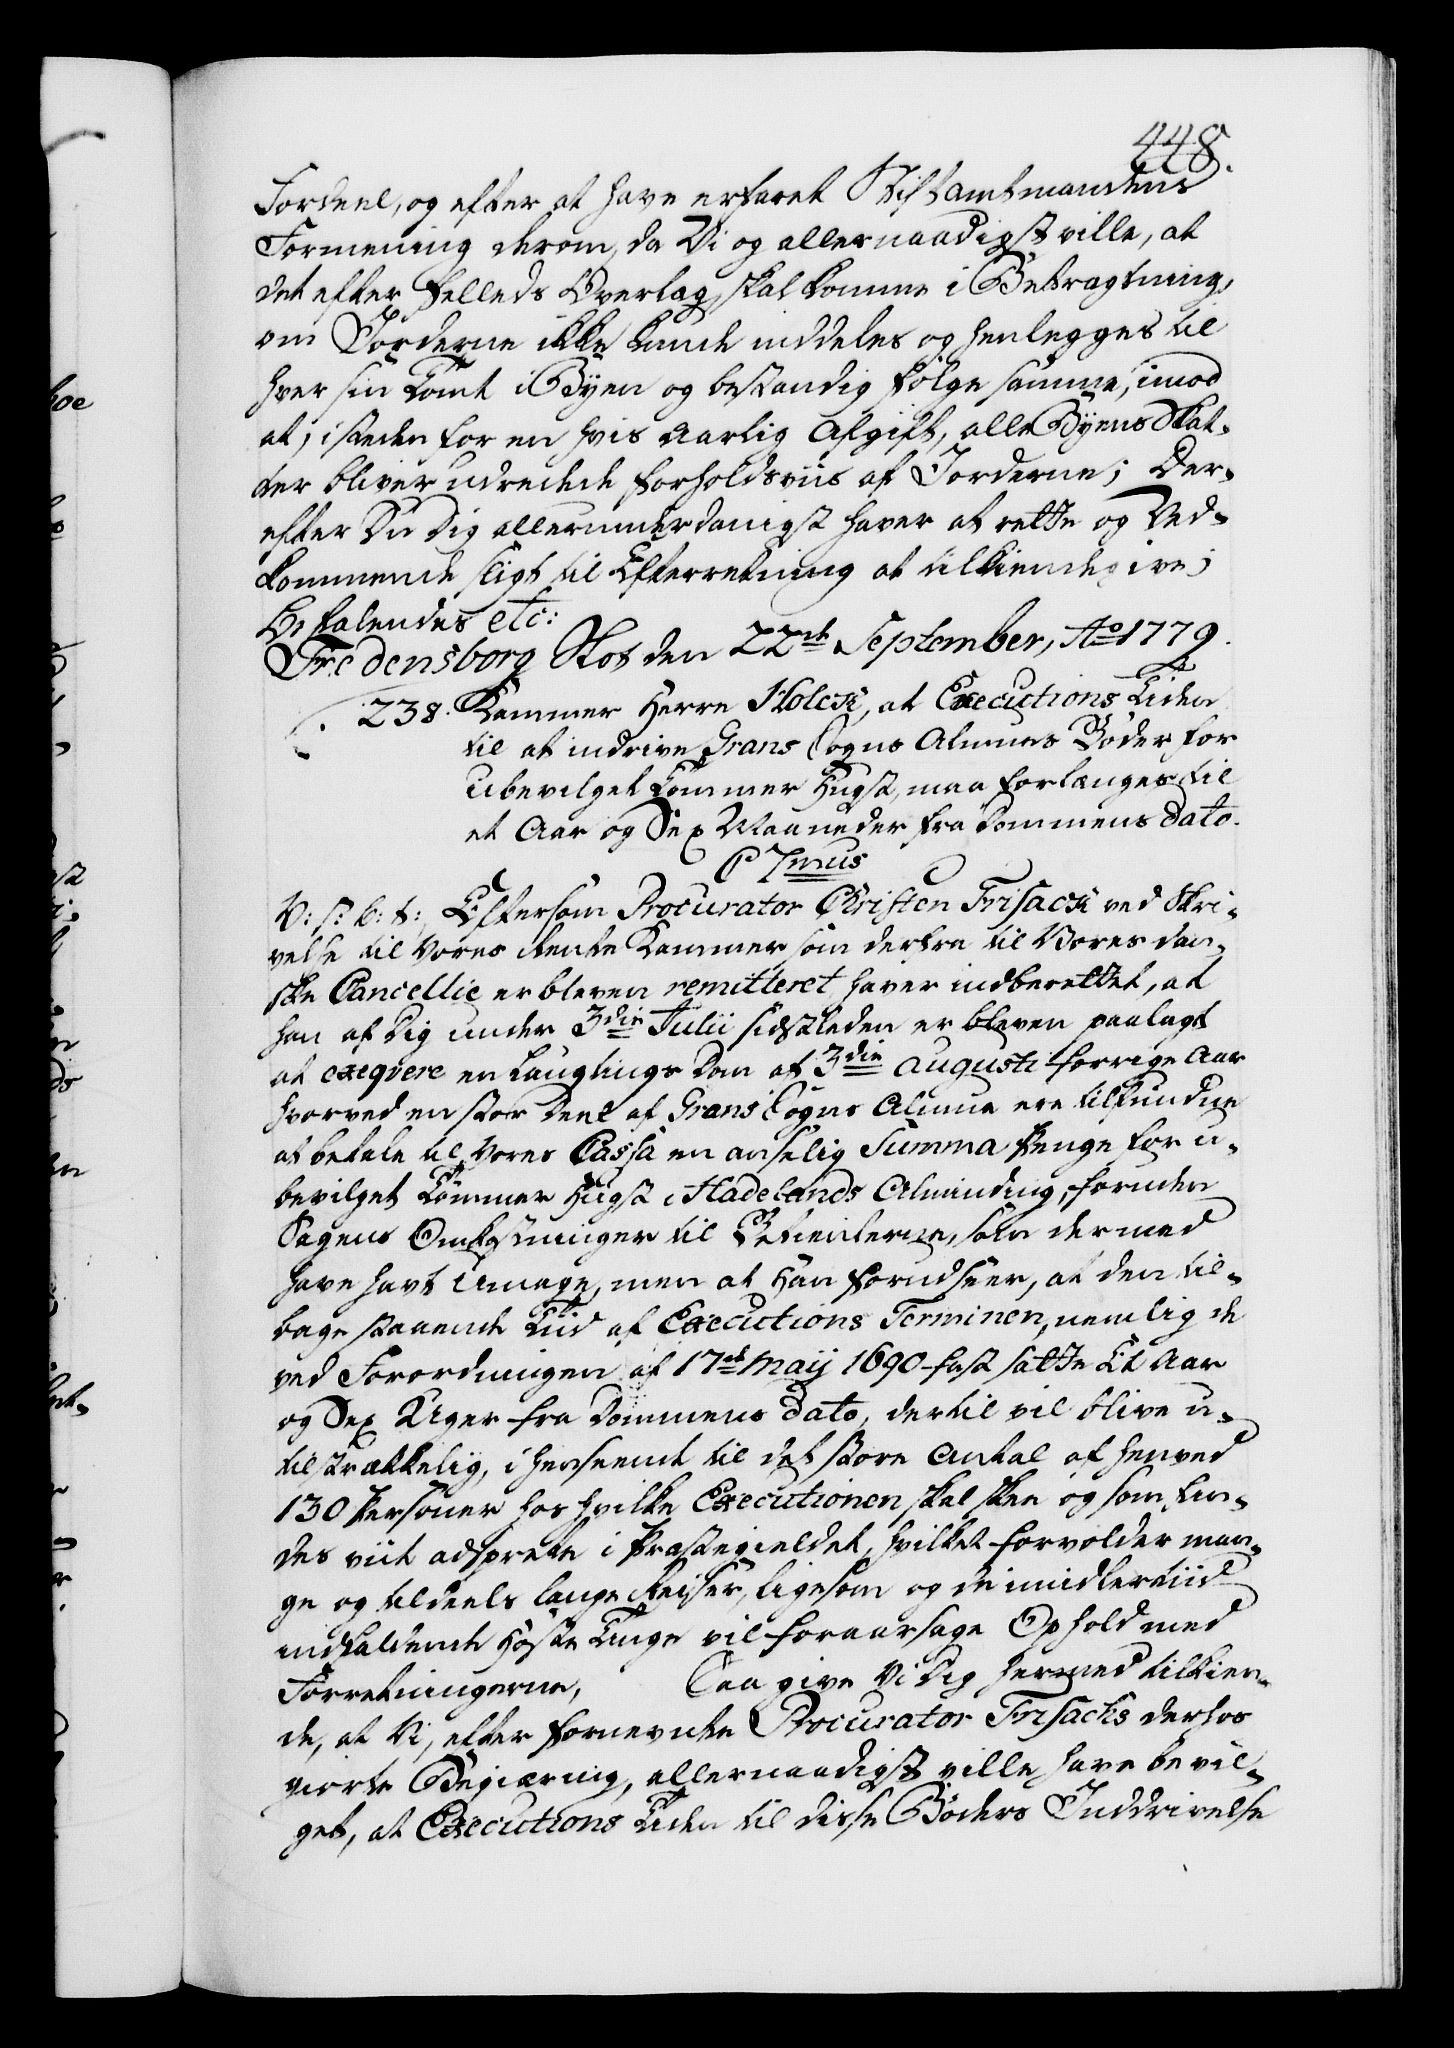 448.
Fordeel, og efter at have erfaret Stiftamtmandens
Formening derom, da Vi og allernaadigst ville, at
det efter fælleds Overlæg, skal komme i Betragtning,
om Jorderne ikke kunde inddeles og henlegges til
hver sin Tomt i Byen og bestandig følge samme, imod
at, i steden for en hvis aarlig Afgift, alle Byens Skat-
ter bliver udredede forholdsviis af Jorderne; Der-
efter Du dig allerunderdanigst haver at rette og Ved-
kommende sligt til Efterretning at tilkiendegive;
Befalendes etc:
Fredensborg Slot den 22de September, Ao 1779.
238. Kammer Herre Holck, at Executions Tiden
til at indrive Grans Sogns Almues Bøder for
Ubevilget Tømmer Hugst, maa forlænges til
et Aar og Sex Maaneder fra Dommens Dato.
C 7mus
V: s: b: t:, Eftersom Procurator Christen Frisach ved Skri-
velse til Vores Rente Kammer som derfra til Vores dan-
ske Cancellie er bleven remitteret, haver indberettet, at
han af Dig under 3die Julii sidstleden er bleven paalagt
at exeqvere en Laugtings Dom af 3die Augusti forrige Aar
hvorved en stor Deel af Grans Sogns Almue ere tilfundne
at betale til Vores Cassa en anselig Summa Penge for u-
bevilget Tømmer Hugst i Hadelands Alminding, foruden
Sagens Omkostninger til Betienterne, som dermed
have havt Umage, men at Han forudseer, at den til-
bage staaende Tiid af Executions Terminen, nemlig de
ved Forordningen af 17de Maij 1690 fast satte Et Aar
og Sex Uger fra Dommens Dato, dertil vil blive u-
tilstrækkelig, i henseende til det store Antal af henved
130 Personer hos hvilke Executionen skal skee og som fin-
des viit adsprete i Præstegieldet, hvilket forvolder man-
ge og tildeels lange Reiser, ligesom og de imidlertiid
indfaldende Høste Tinge vil foraarsage Ophold med
Forretningerne, Saa give Vi Dig hermed tilkien-
de, at Vi, efter fornevnte Procurator Frisachs derhos
giorte Begiæring, allernaadigst ville have bevil-
get, at Executions Tiden til disse Bøders Inddrivelse